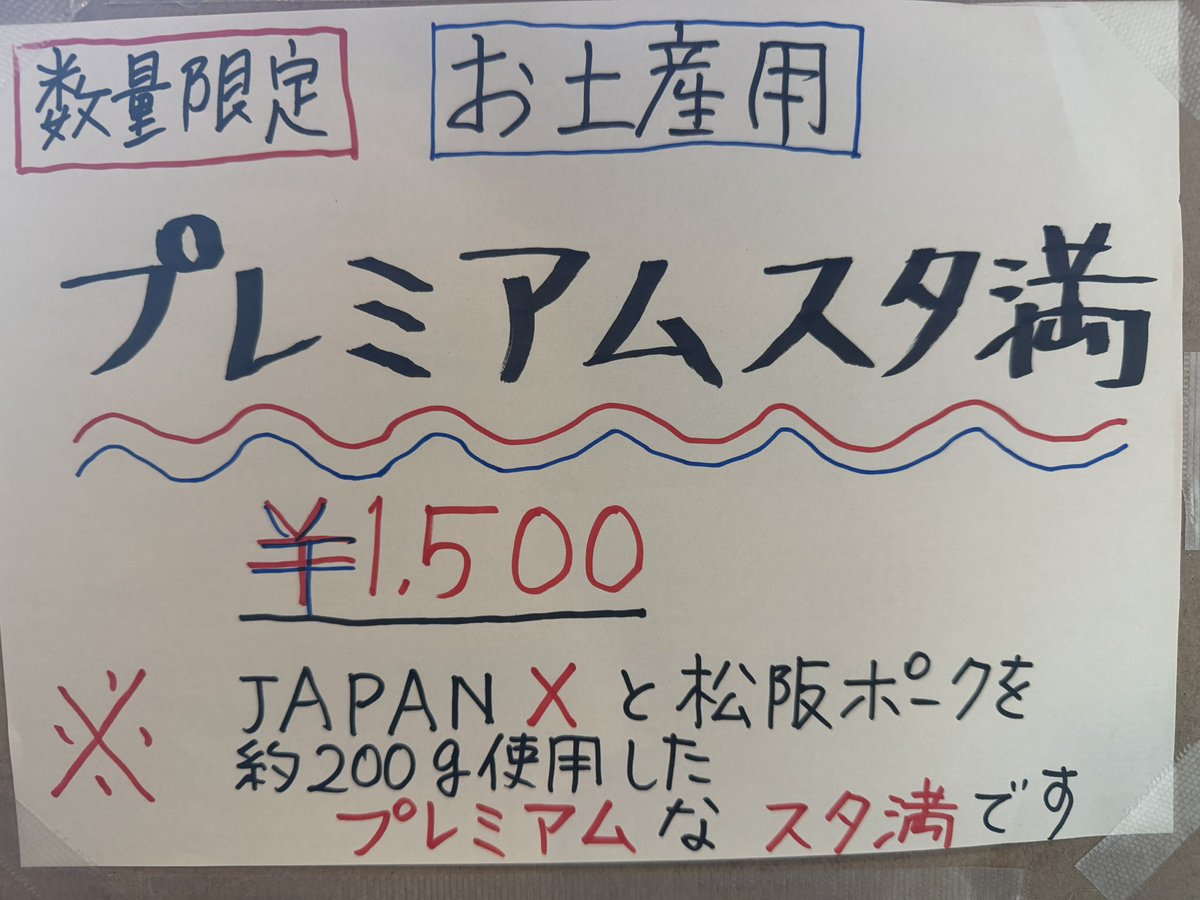 数量限定 お土産用
プレミアムスタ満
¥1,500
※ JAPAN X と松阪ポークを
約200g使用した
プレミアムなスタ満です